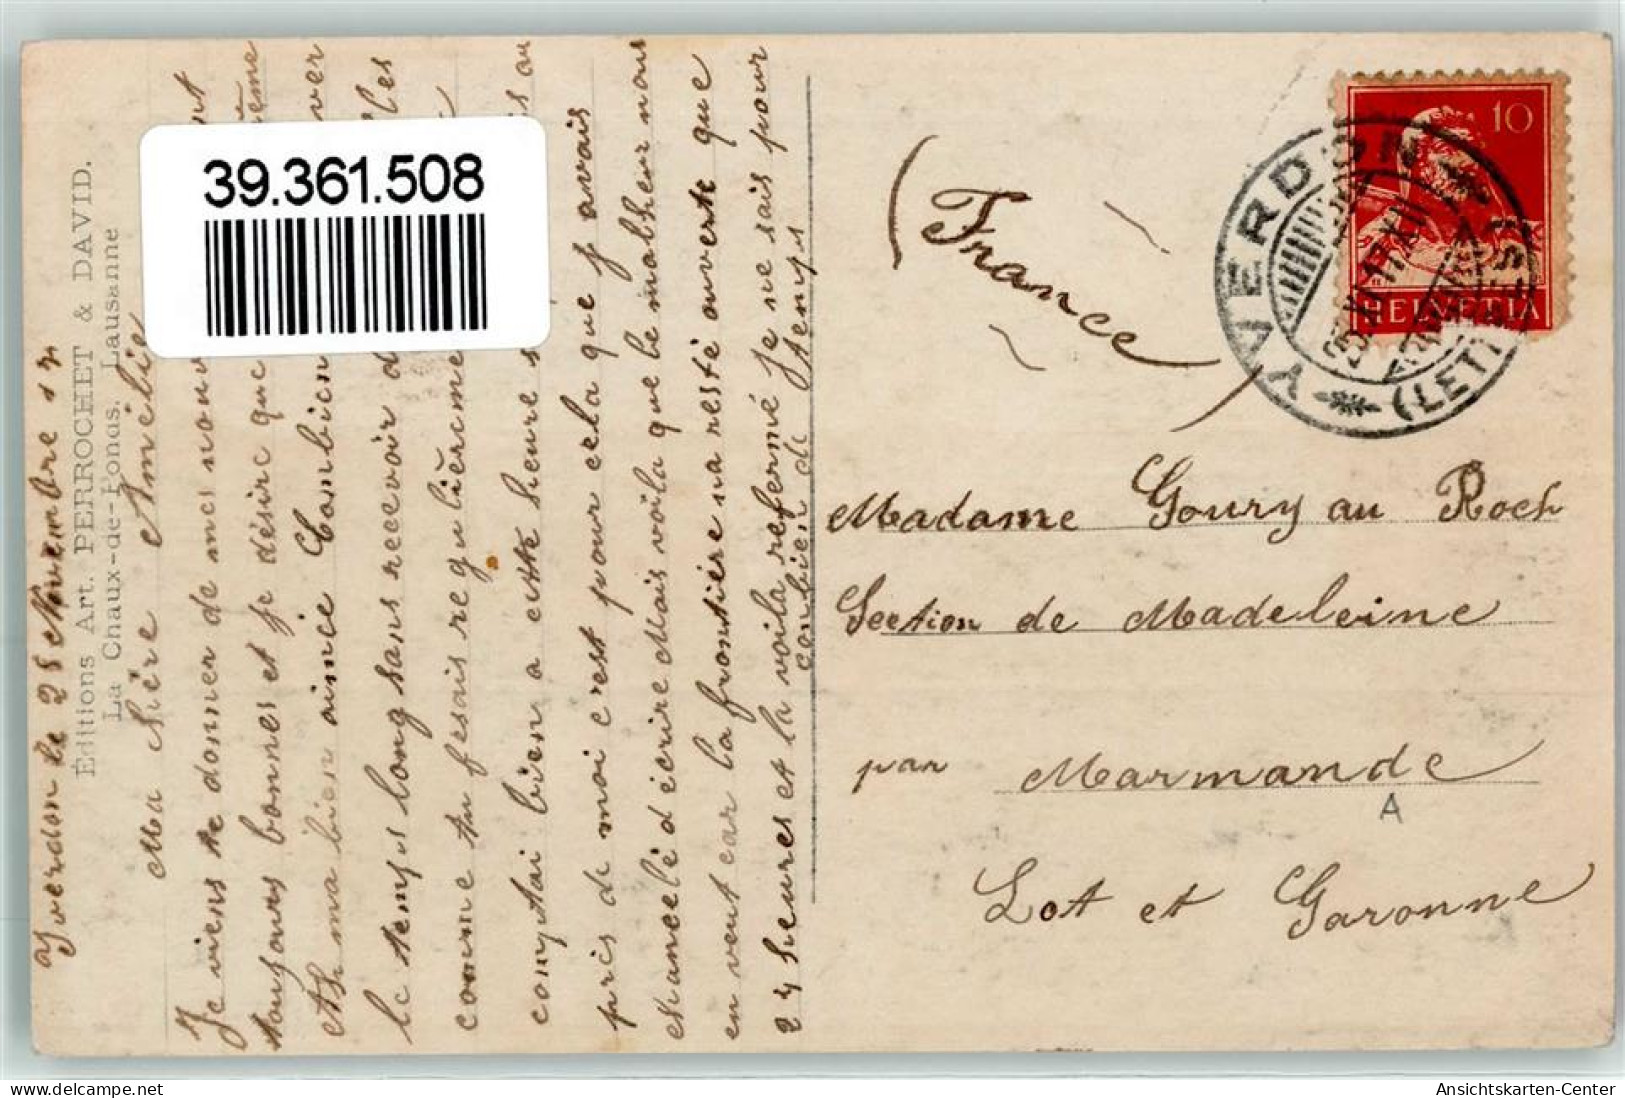 Yverdon le 28 Novembre 17
Éditions Art. PERROCHET & DAVID.
La Chaux-de-Fonds. Lausanne
Ma chère Amélie
Je viens te donner de mes nouv
toujours bonnes et je désire que même
et ma bien aimée Combien ver
le temps long sans recevoir d les
comme tu fesais regulièreme
comptai bien a cette heure s is au
pris de moi c'est pour cela que j'avais
chancelé d'écrire Mais voila que le malheur nous
en veut car la frontière na resté ouverte que
24 heures et la voila refermé je ne sais pour
combien de temps
39.361.508
(France)
10
HELVETIA
YVERDON
(LETT
Madame Goury au Roch
Section de Madeleine
par Marmande
A
Lot et Garonne
Ansichtskarten-Center